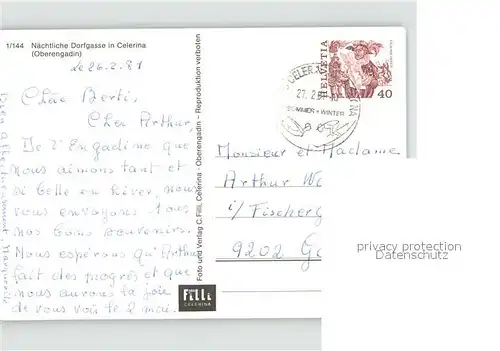 1/144 Nächtliche Dorfgasse in Celerina
(Oberengadin)
le 26.2.81
Chère Berti,
Cher Arthur,
De l'Engadine que
nous aimons tant et
si belle en hiver, nous
vous envoyons tous
nos bons souvenirs.
Nous espérons qu'Arthur
fait des progrès et que
nous aurons la joie
de vous voir le 2 mai.
Foto und Verlag C. Filli, Celerina - Oberengadin - Reproduktion verboten
Filli
CELERINA
HELVETIA
40
CELER
27. 2.81
SOMMER + WINTER
Monsieur et Madame
Arthur W
i/Fischerg
9202 Go
privacy protection
Datenschutz